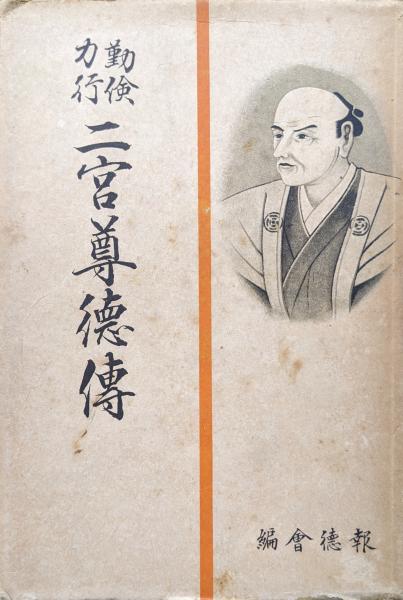 勤倹
力行
二宮尊徳傳
報徳會編